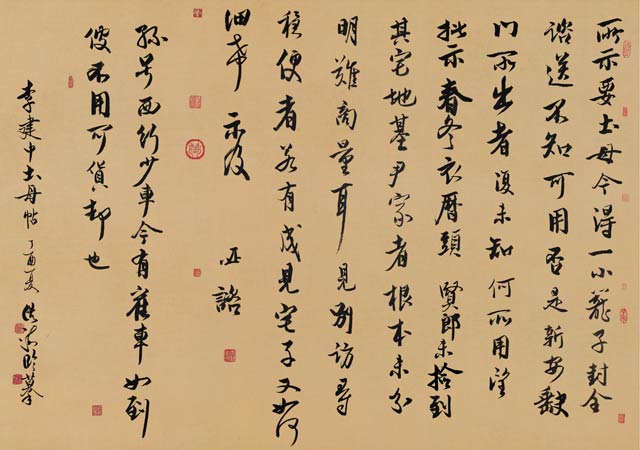 所示要土母今得一小籠子封全
諮送不知可用否是新安缺
門所出者復未知何所用望
批示春冬衣曆頭 賢郎未撿到
其宅地基尹家者根本未分
明難商量耳見別訪尋
穩便者若有成見宅子又如何
細希 示及 諮
孫号西行少車今有舊車如到
彼不用可貨却也
李建中土母帖 丁酉夏 摹